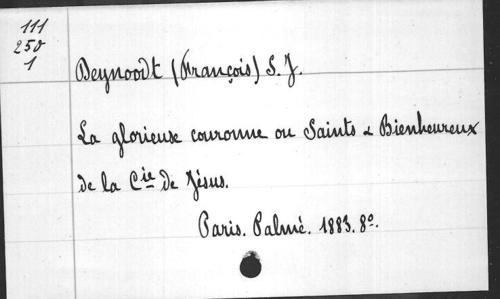 111
250
1
Deynoodt (François) S. J.
La glorieuse couronne ou Saints & Bienheureux
de la Cie de Jésus.
Paris. Palmé. 1883. 8o.